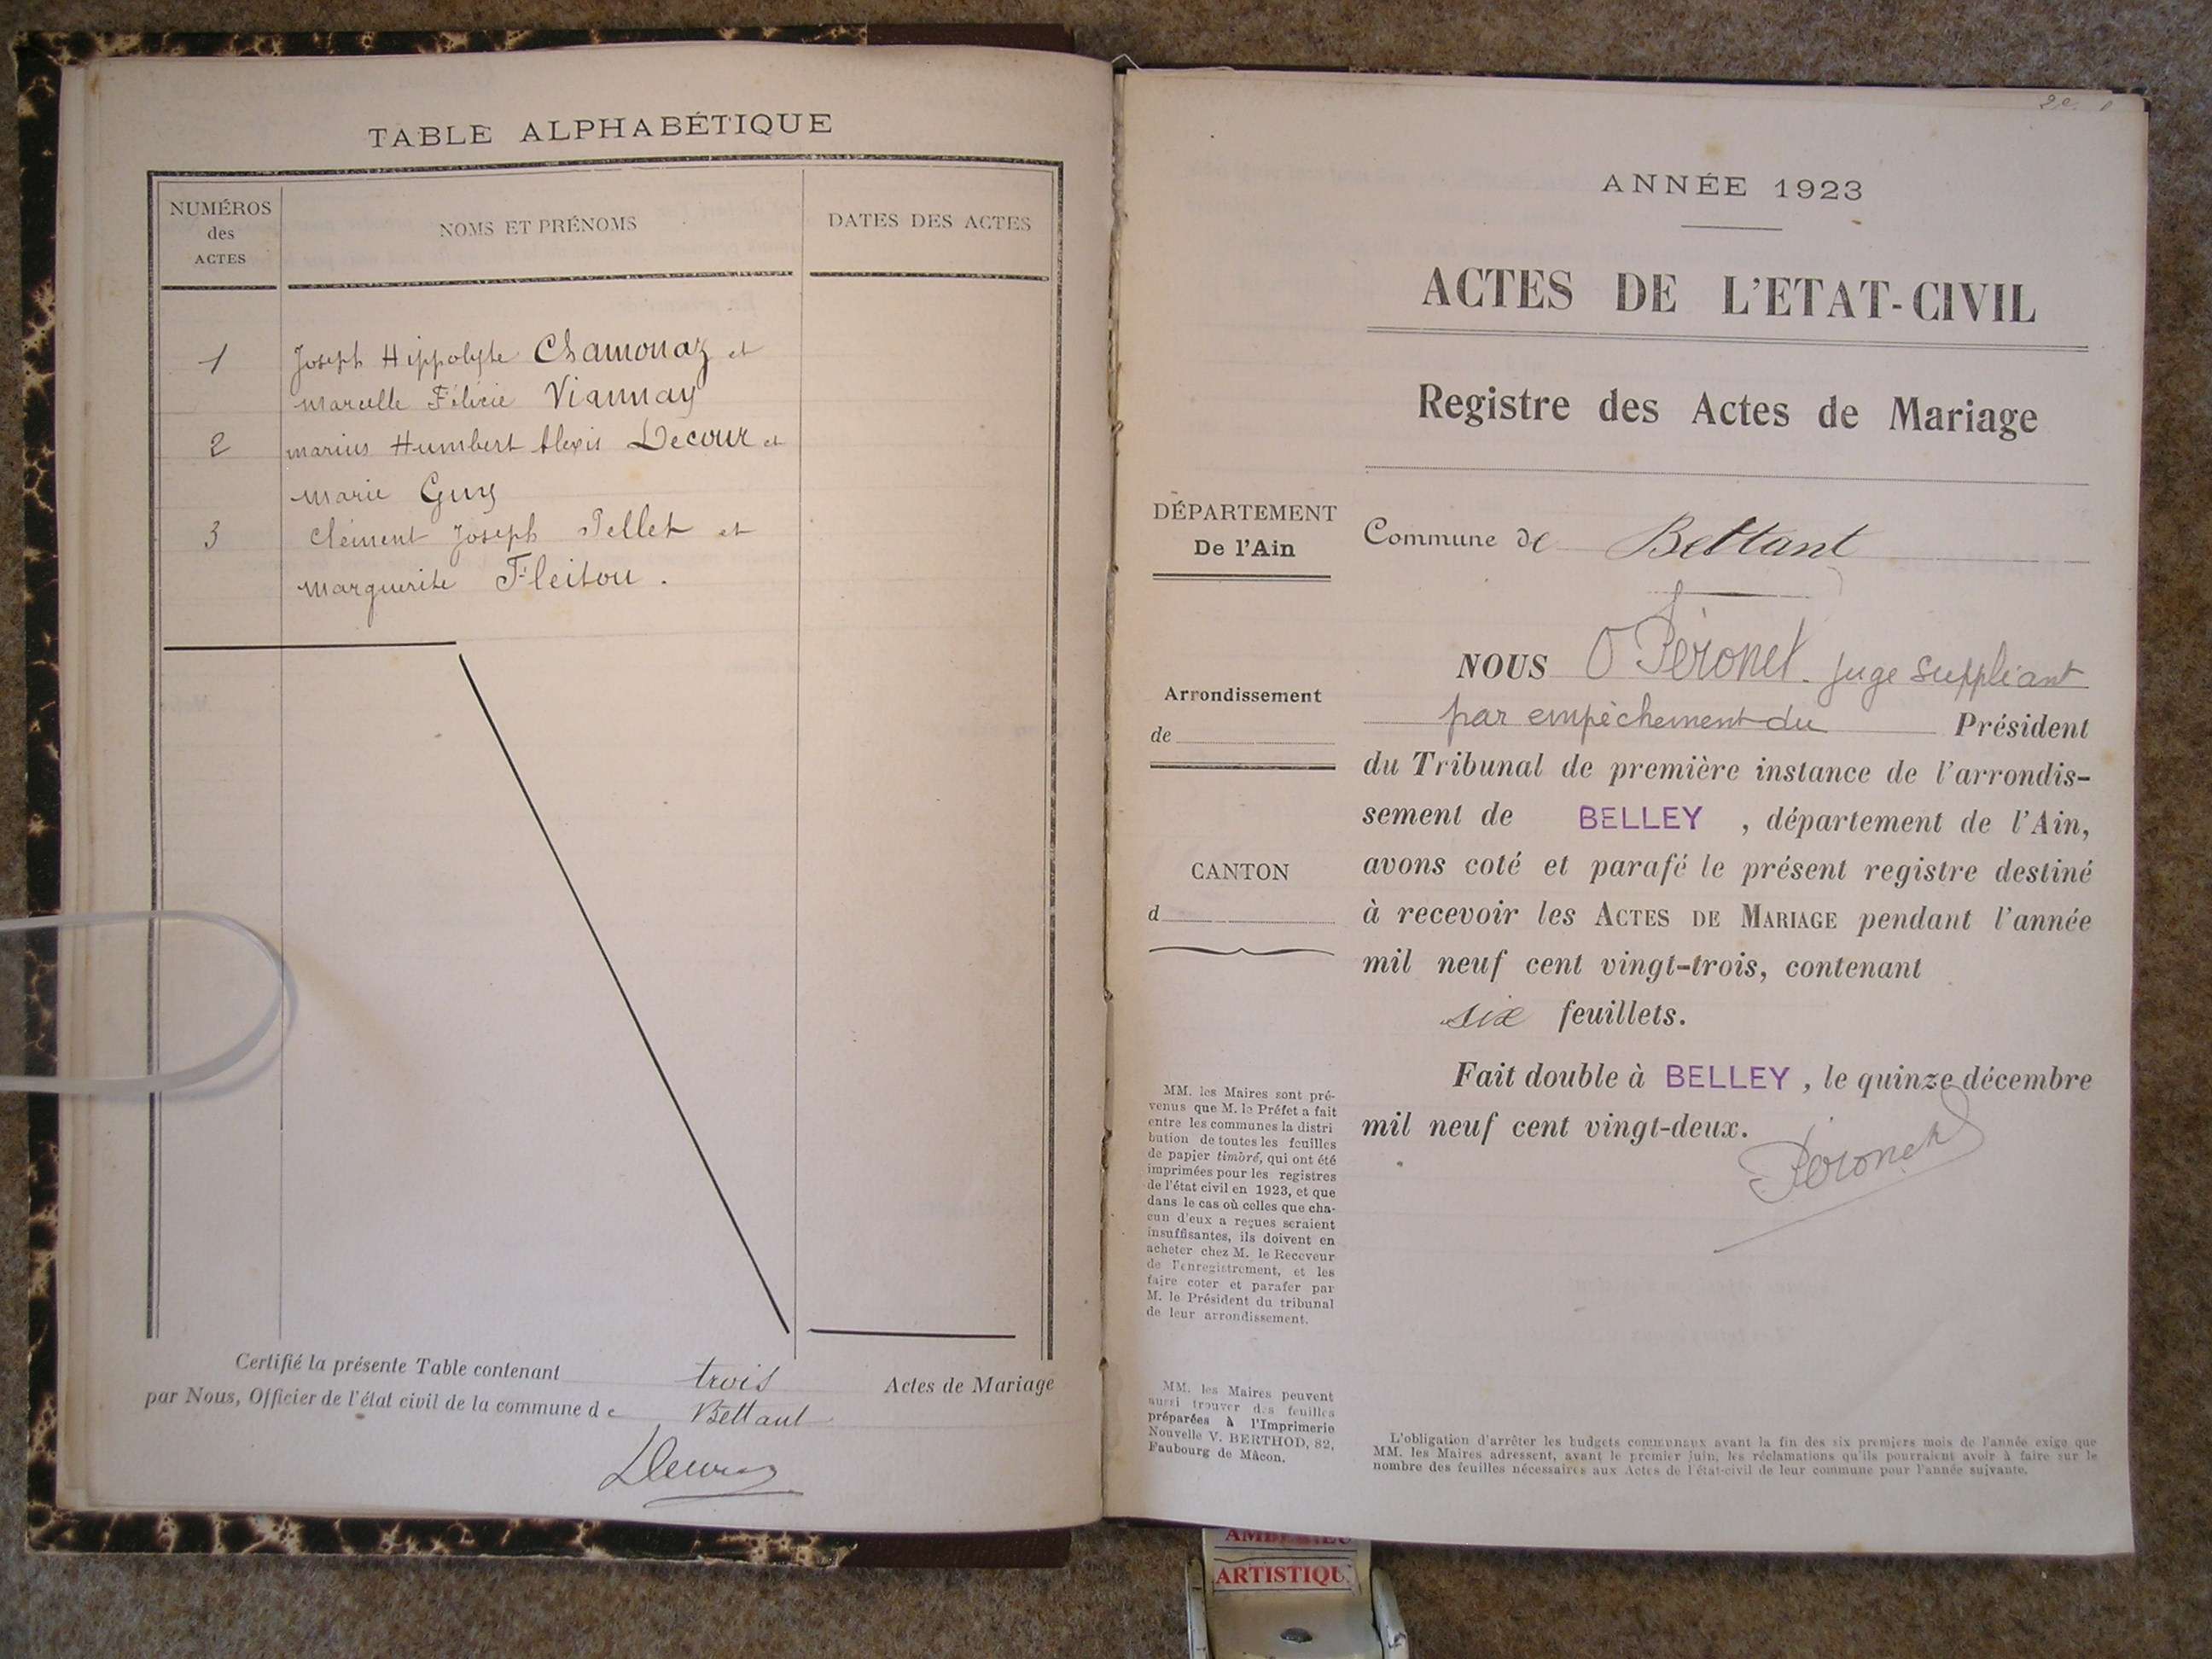 TABLE ALPHABÉTIQUE
NUMÉROS
des
ACTES
NOMS ET PRÉNOMS
DATES DES ACTES
1 Joseph Hippolyte Chamonaz et
Marcelle Félicie Viannay
2 Marius Humbert Alexis Decour et
Marie Guy
3 Clément Joseph Pellet et
Marguerite Fleitou.
Certifié la présente Table contenant trois Actes de Mariage
par Nous, Officier de l'état civil de la commune de Bettant
ANNÉE 1923
ACTES DE L'ETAT-CIVIL
Registre des Actes de Mariage
DÉPARTEMENT
De l'Ain
Commune de Bettant
Arrondissement
de
CANTON
d
NOUS Péronet. juge suppléant
par empêchement du Président
du Tribunal de première instance de l'arrondis-
sement de BELLEY, département de l'Ain,
avons coté et parafé le présent registre destiné
à recevoir les ACTES DE MARIAGE pendant l'année
mil neuf cent vingt-trois, contenant
six feuillets.
Fait double à BELLEY, le quinze décembre
mil neuf cent vingt-deux.
Péronet
MM. les Maires sont pré-
venus que M. le Préfet a fait
entre les communes la distri
bution de toutes les feuilles
de papier timbré, qui ont été
imprimées pour les registres
de l'état civil en 1923, et que
dans le cas où celles que cha-
cun d'eux a reçues seraient
insuffisantes, ils doivent en
acheter chez M. le Receveur
de l'enregistrement, et les
faire coter et parafer par
M. le Président du tribunal
de leur arrondissement.
MM. les Maires peuvent
aussi trouver des feuilles
préparées à l'Imprimerie
Nouvelle V. BERTHOD, 82,
Faubourg de Mâcon.
L'obligation d'arrêter les budgets communaux avant la fin des six premiers mois de l'année exige que
MM. les Maires adressent, avant le premier juin, les réclamations qu'ils pourraient avoir à faire sur le
nombre des feuilles nécessaires aux Actes de l'état-civil de leur commune pour l'année suivante.
ARTISTIQU